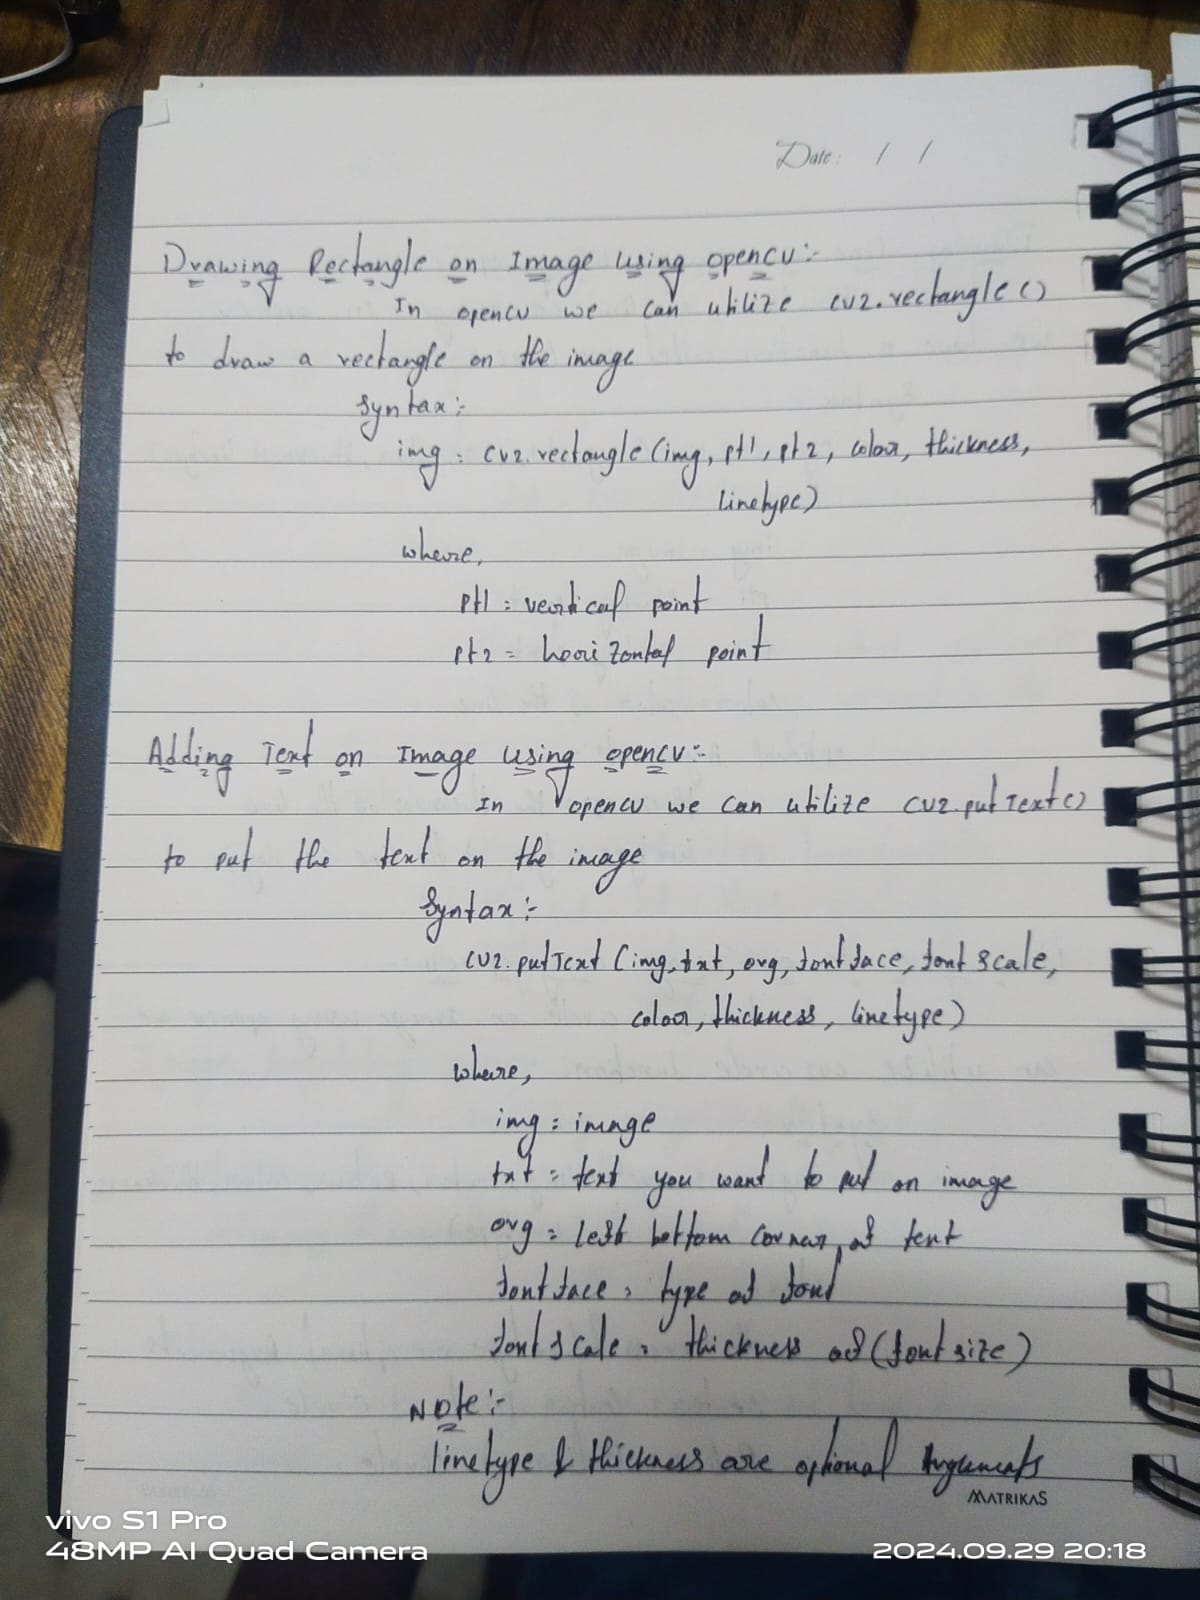 Date: / /
Drawing Rectangle on Image using opencv:-
In opencv we can utilize cv2.rectangle()
to draw a rectangle on the image
Syntax:-
img = cv2.rectangle(img, pt1, pt2, colour, thickness,
linetype)
where,
pt1 = vertical point
pt2 = horizontal point
Adding Text on Image using opencv:-
In opencv we can utilize cv2.putText()
to put the text on the image
Syntax:-
cv2.putText(img, txt, org, fontface, fontscale,
colour, thickness, linetype)
where,
img = image
txt = text you want to put on image
org = left bottom corner of text
fontface = type of font
fontscale = thickness of (font size)
Note:-
linetype & thickness are optional Arguments
MATRIKAS
vivo S1 Pro
48MP AI Quad Camera
2024.09.29 20:18